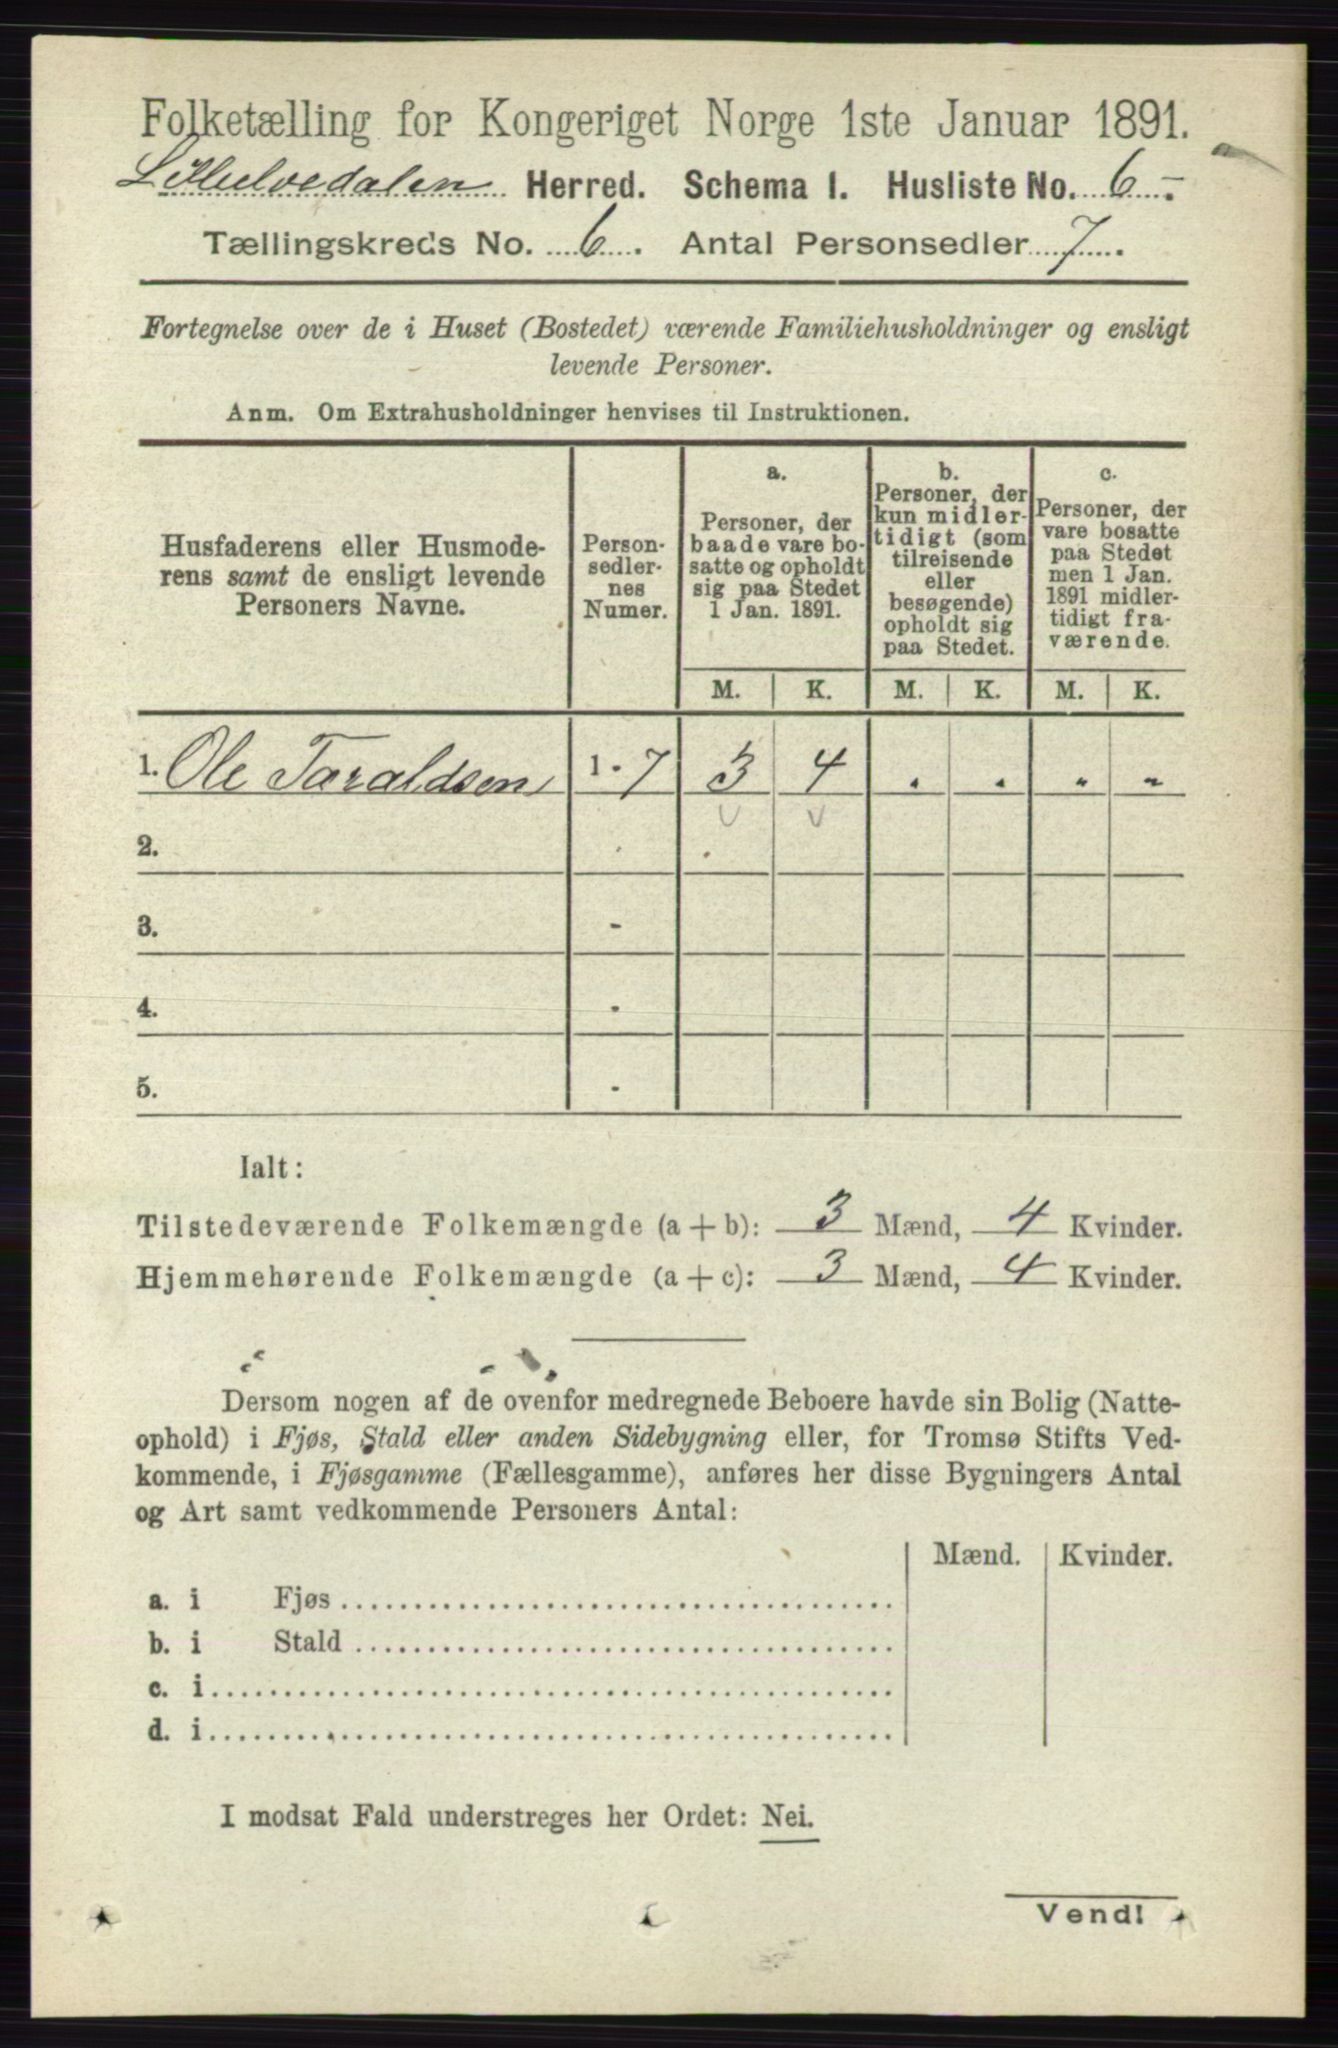 Folketælling for Kongeriget Norge 1ste Januar 1891.
Lilleelvedalen Herred. Schema 1. Husliste No. 6.
Tællingskreds No. 6. Antal Personsedler 7.
Fortegnelse over de i Huset (Bostedet) værende Familiehusholdninger og ensligt
levende Personer.
Anm. Om Extrahusholdninger henvises til Instruktionen.
Husfaderens eller Husmode-
rens samt de ensligt levende
Personers Navne.
Person-
sedler-
nes
Numer.
a.
Personer, der
baade vare bo-
satte og opholdt
sig paa Stedet
1 Jan. 1891.
b.
Personer, der
kun midler-
tidigt (som
tilreisende
eller
besøgende)
opholdt sig
paa Stedet.
c.
Personer, der
vare bosatte
paa Stedet
men 1 Jan.
1891 midler-
tidigt fra-
værende.
M. K. M. K. M. K.
1. Ole Taraldsen 1 - 7 3 4 . . " "
2. -
3. -
4. -
5. -
Ialt:
Tilstedeværende Folkemængde (a + b): 3 Mænd, 4 Kvinder.
Hjemmehørende Folkemængde (a + c): 3 Mænd, 4 Kvinder.
Dersom nogen af de ovenfor medregnede Beboere havde sin Bolig (Natte-
ophold) i Fjøs, Stald eller anden Sidebygning eller, for Tromsø Stifts Ved-
kommende, i Fjøsgamme (Fællesgamme), anføres her disse Bygningers Antal
og Art samt vedkommende Personers Antal:
Mænd. Kvinder.
a. i Fjøs
b. i Stald
c. i
d. i
I modsat Fald understreges her Ordet: Nei.
Vend!